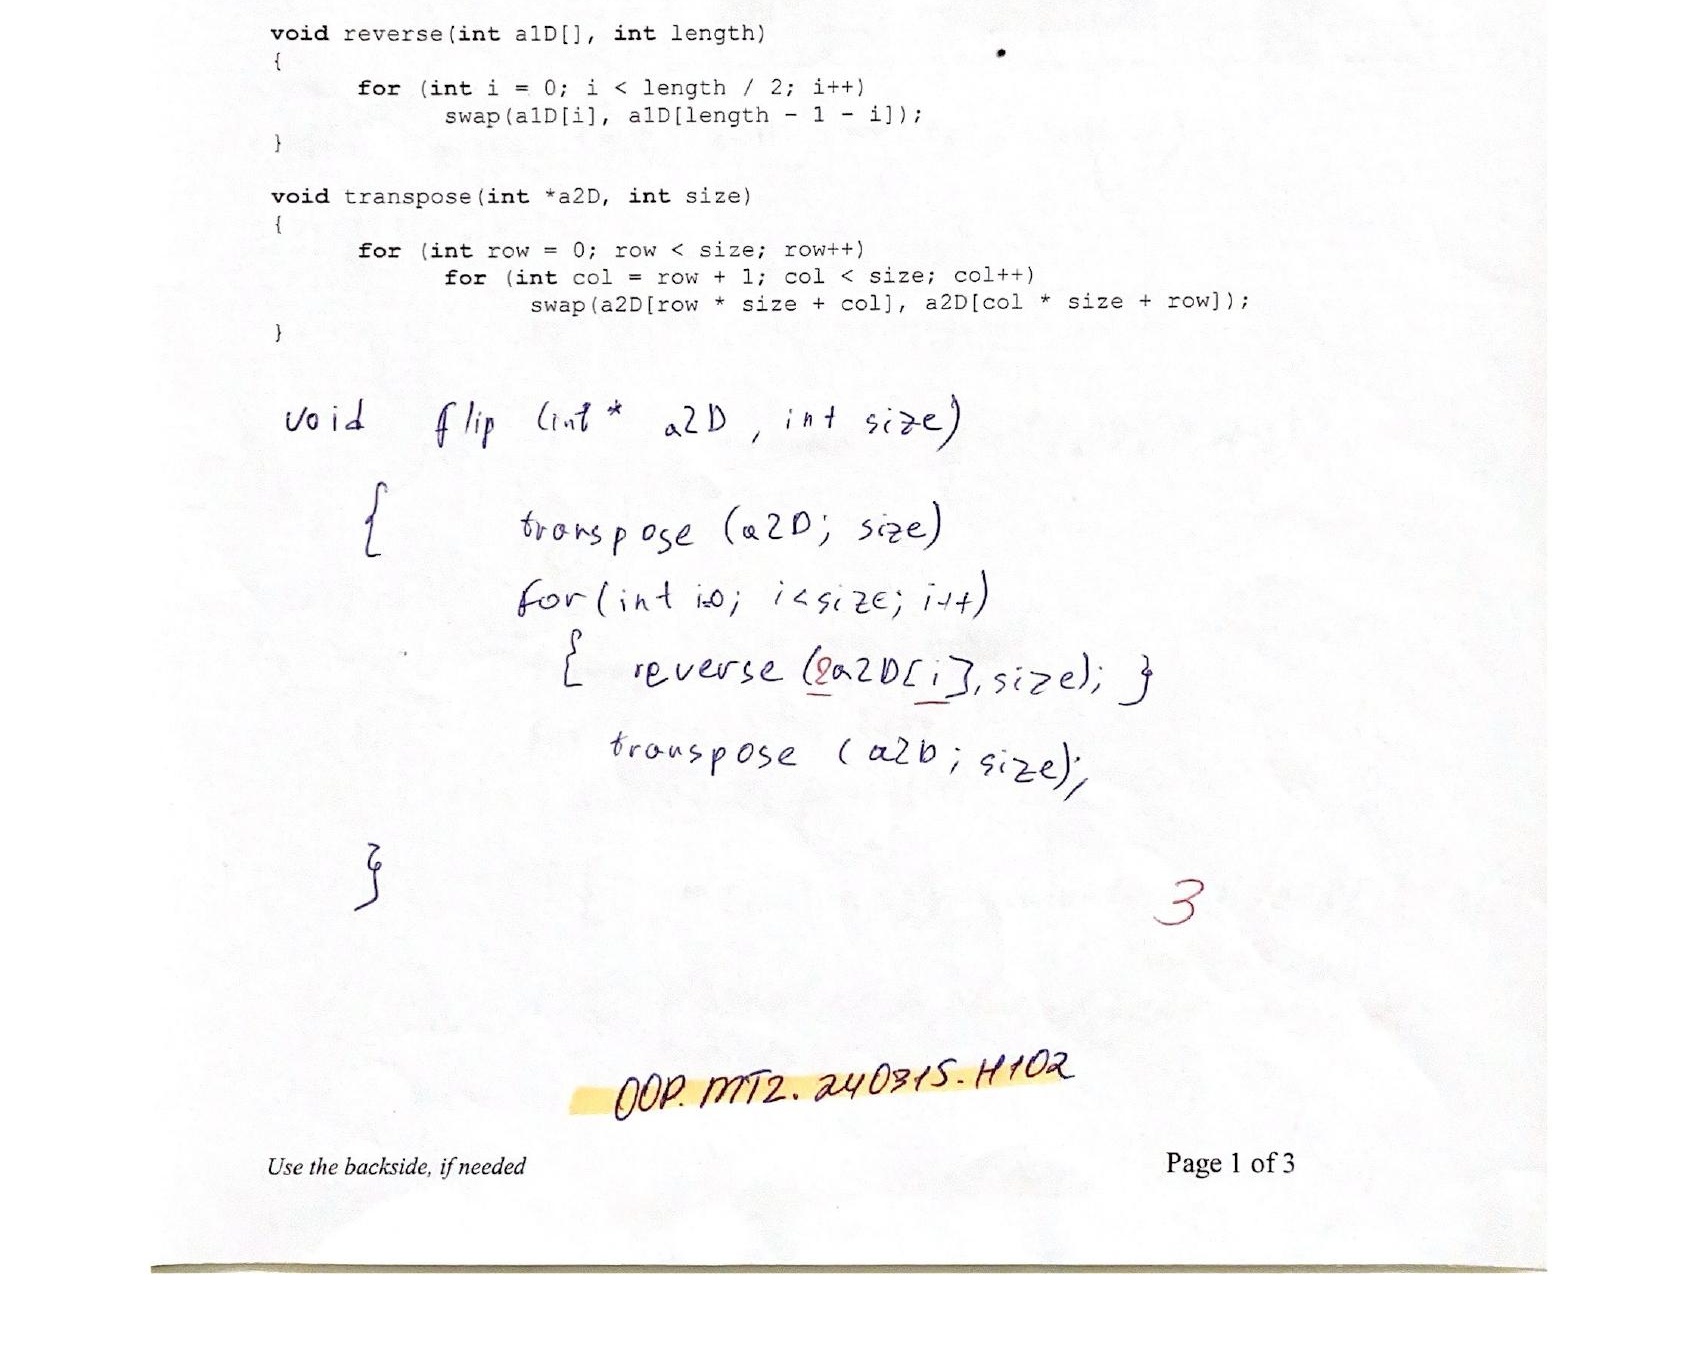 void reverse(int a1D[], int length)
{
for (int i = 0; i < length / 2; i++)
swap(a1D[i], a1D[length - 1 - i]);
}
void transpose(int *a2D, int size)
{
for (int row = 0; row < size; row++)
for (int col = row + 1; col < size; col++)
swap(a2D[row * size + col], a2D[col * size + row]);
}
void flip (int * a2D , int size)
{ transpose (a2D; size)
for (int i=0; i<size; i++)
{ reverse (&a2D[i], size); }
transpose (a2D; size);
}
3
OOP. MT2. 240315. H102
Use the backside, if needed
Page 1 of 3